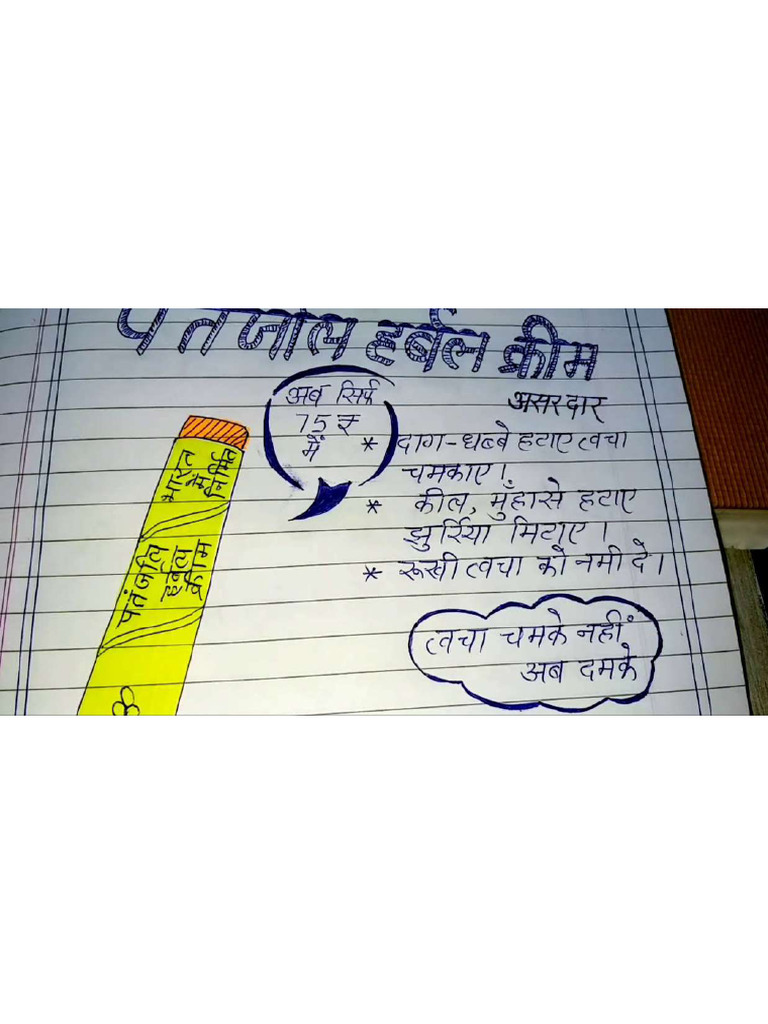 पतंजलि हर्बल क्रीम
अब सिर्फ
75 रु
में
असरदार
* दाग-धब्बे हटाए त्वचा
चमकाए।
* कील, मुँहासे हटाए
झुर्रिया मिटाए।
* रूखी त्वचा को नमी दे।
त्वचा चमके नहीं
अब दमके
भारत
में
निर्मित
पतंजलि
हर्बल
क्रीम